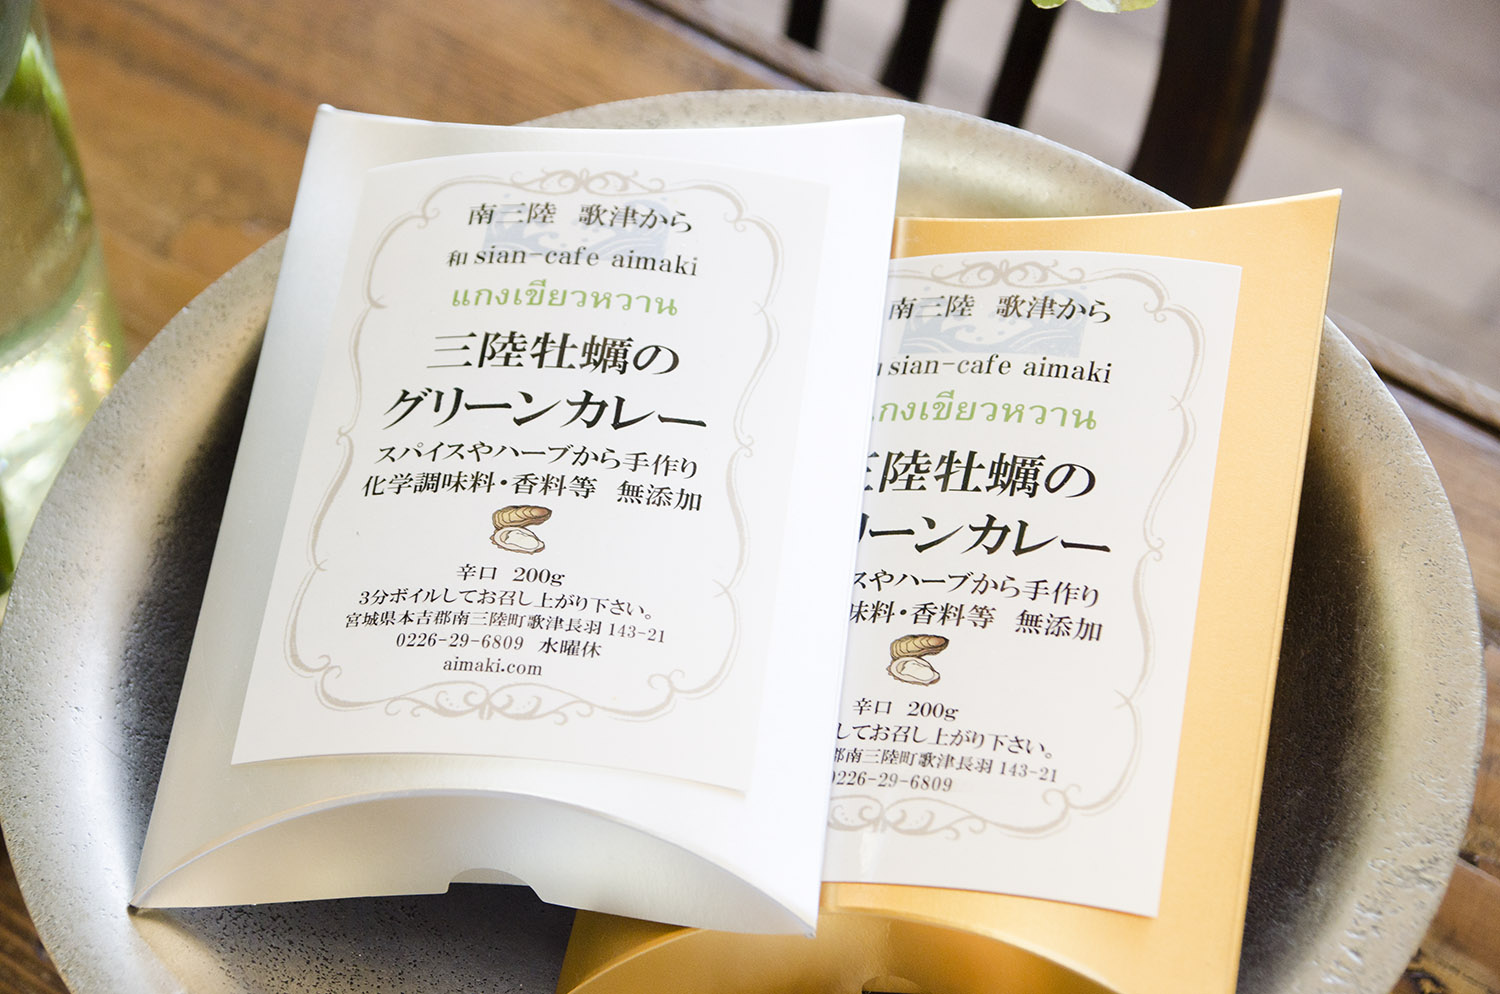 南三陸 歌津から
和 sian-cafe aimaki
แกงเขียวหวาน
三陸牡蠣の
グリーンカレー
スパイスやハーブから手作り
化学調味料・香料等 無添加
辛口 200g
3分ボイルしてお召し上がり下さい。
宮城県本吉郡南三陸町歌津長羽 143-21
0226-29-6809 水曜休
aimaki.com
南三陸 歌津から
sian-cafe aimaki
กงเขียวหวาน
三陸牡蠣の
リーンカレー
スやハーブから手作り
味料・香料等 無添加
辛口 200g
してお召し上がり下さい。
郡南三陸町歌津長羽 143-21
0226-29-6809